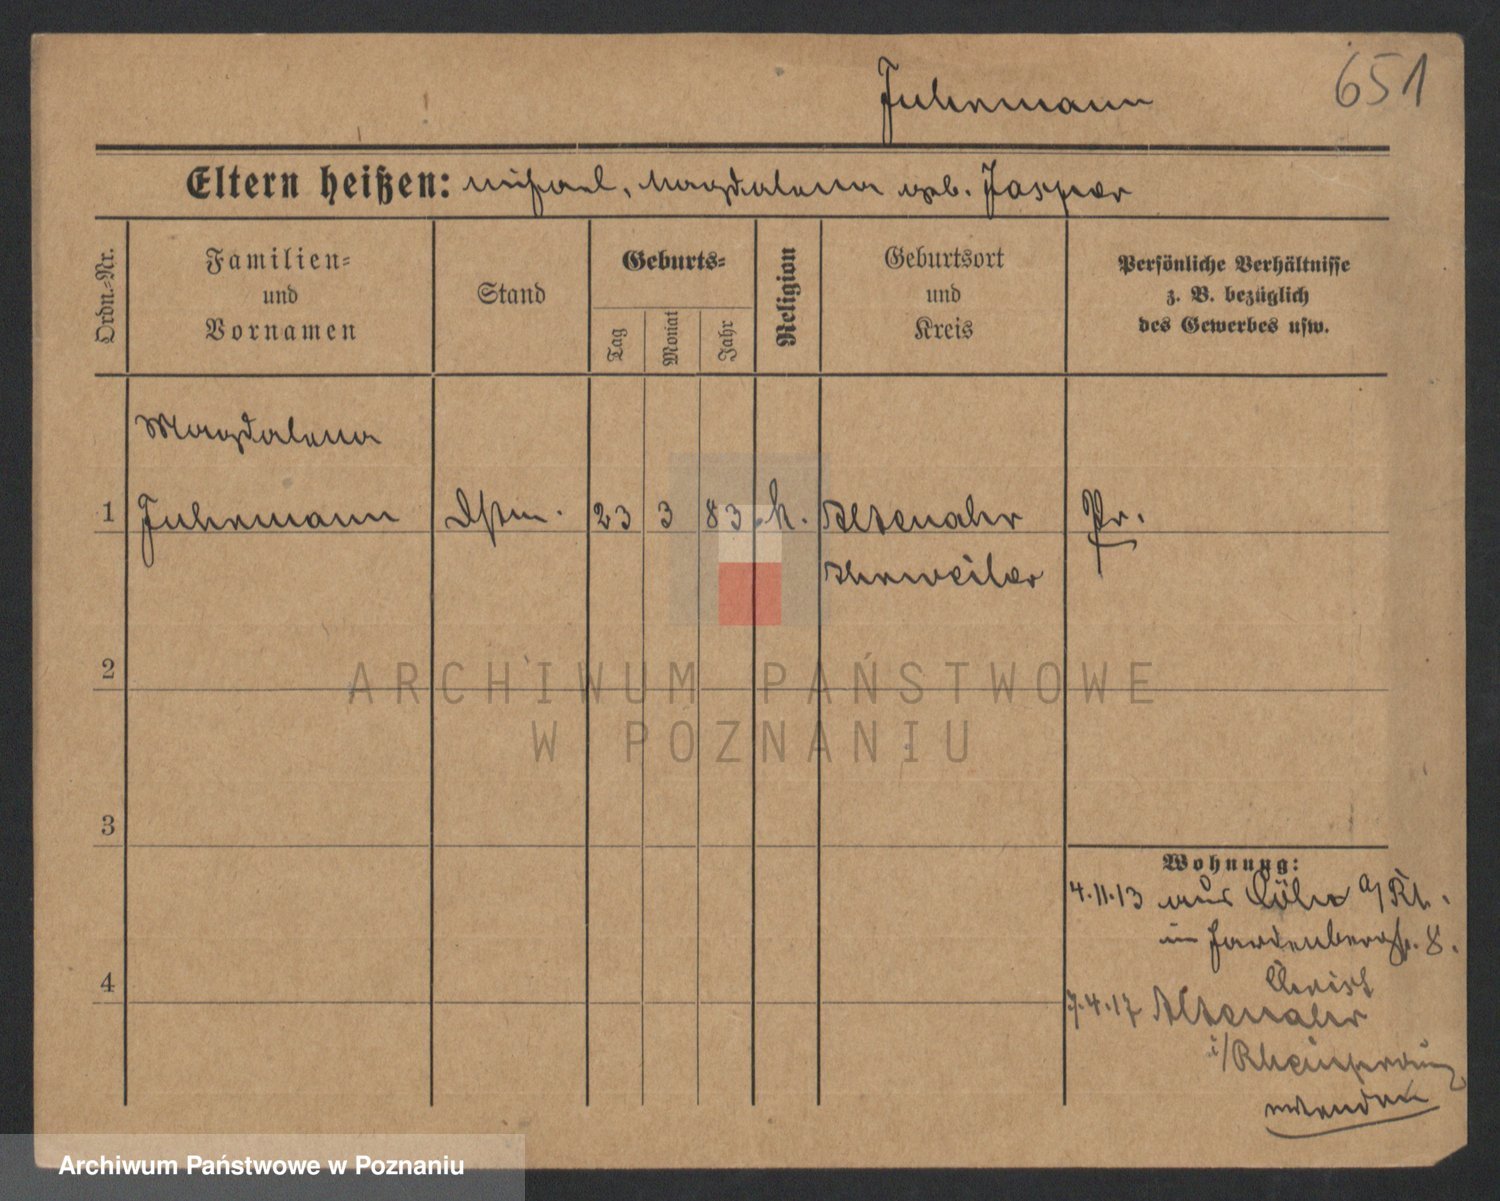 651
Fuhrmann
Eltern heißen: Michael, Magdalena geb. Jasper
Ordn.-Nr.
Familien-
und
Vornamen
Stand
Geburts-
Tag
Monat
Jahr
Religion
Geburtsort
und
Kreis
Persönliche Verhältnisse
z. B. bezüglich
des Gewerbes usw.
Magdalena
1 Fuhrmann 23 3 83 k. Altenahr Pr.
Ahrweiler
2
ARCHIWUM PAŃSTWOWE
W POZNANIU
3
Wohnung:
4.11.13 aus Cöln a/Rh.
in Hardenbergstr. 8.
Christ
4
7.4.17 Altenahr
i/Rheinprovinz
wenden
Archiwum Państwowe w Poznaniu